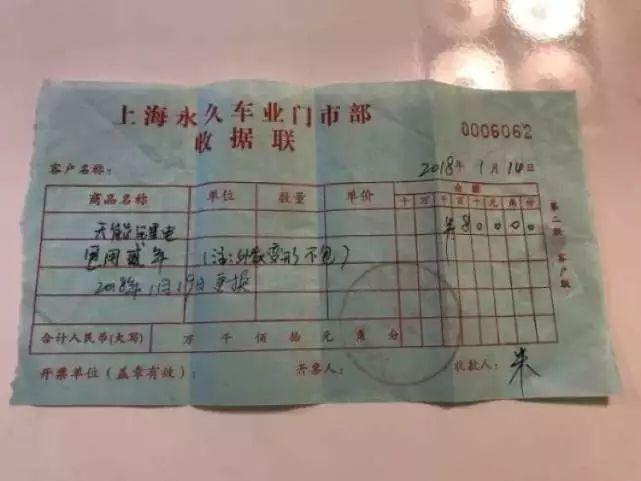 上海永久车业门市部
收据联
0006062
客户名称: 2018年1月14日
商品名称 单位 数量 单价 金额
十 万 千 百 十 元 角 分
80000
包用贰年 (注:外散变形不包)
2018年1月19日更换
合计人民币(大写) 万 千 佰 拾 元 角 分
开票单位(盖章有效): 开客人: 收款人: 朱
第二联:客户联